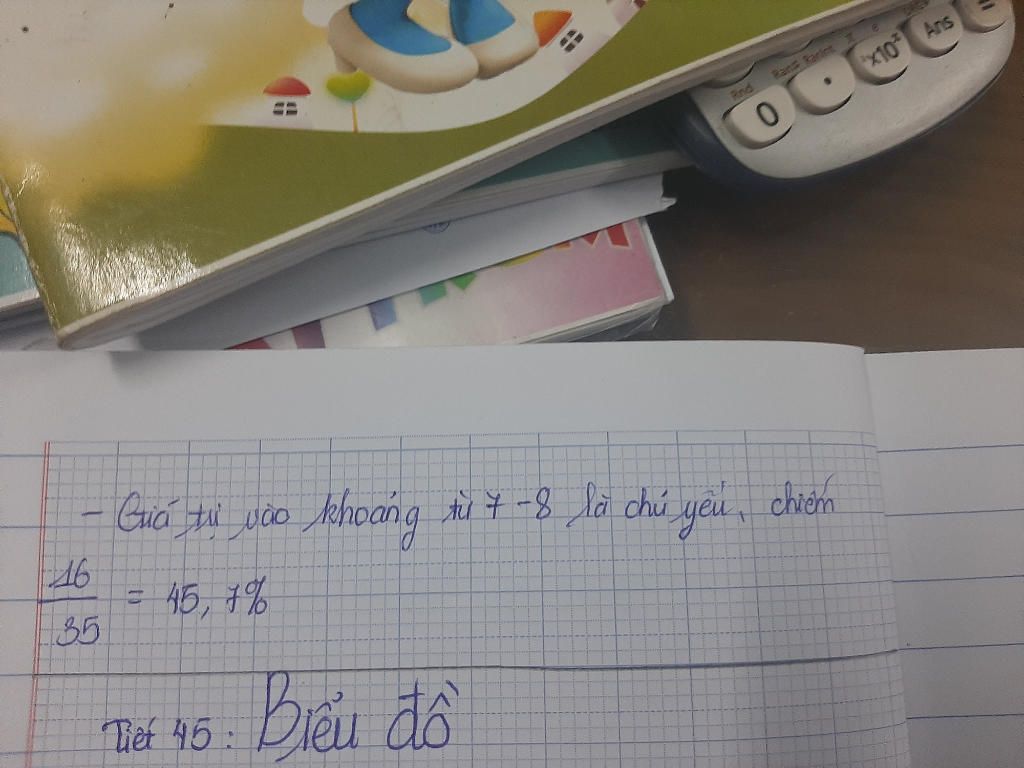 Rnd
Ran# RanInt
0
.
×10ˣ
Ans
=
- Giá trị vào khoảng từ 7-8 là chủ yếu, chiếm
16
35
= 45,7%
Tiết 45: Biểu đồ